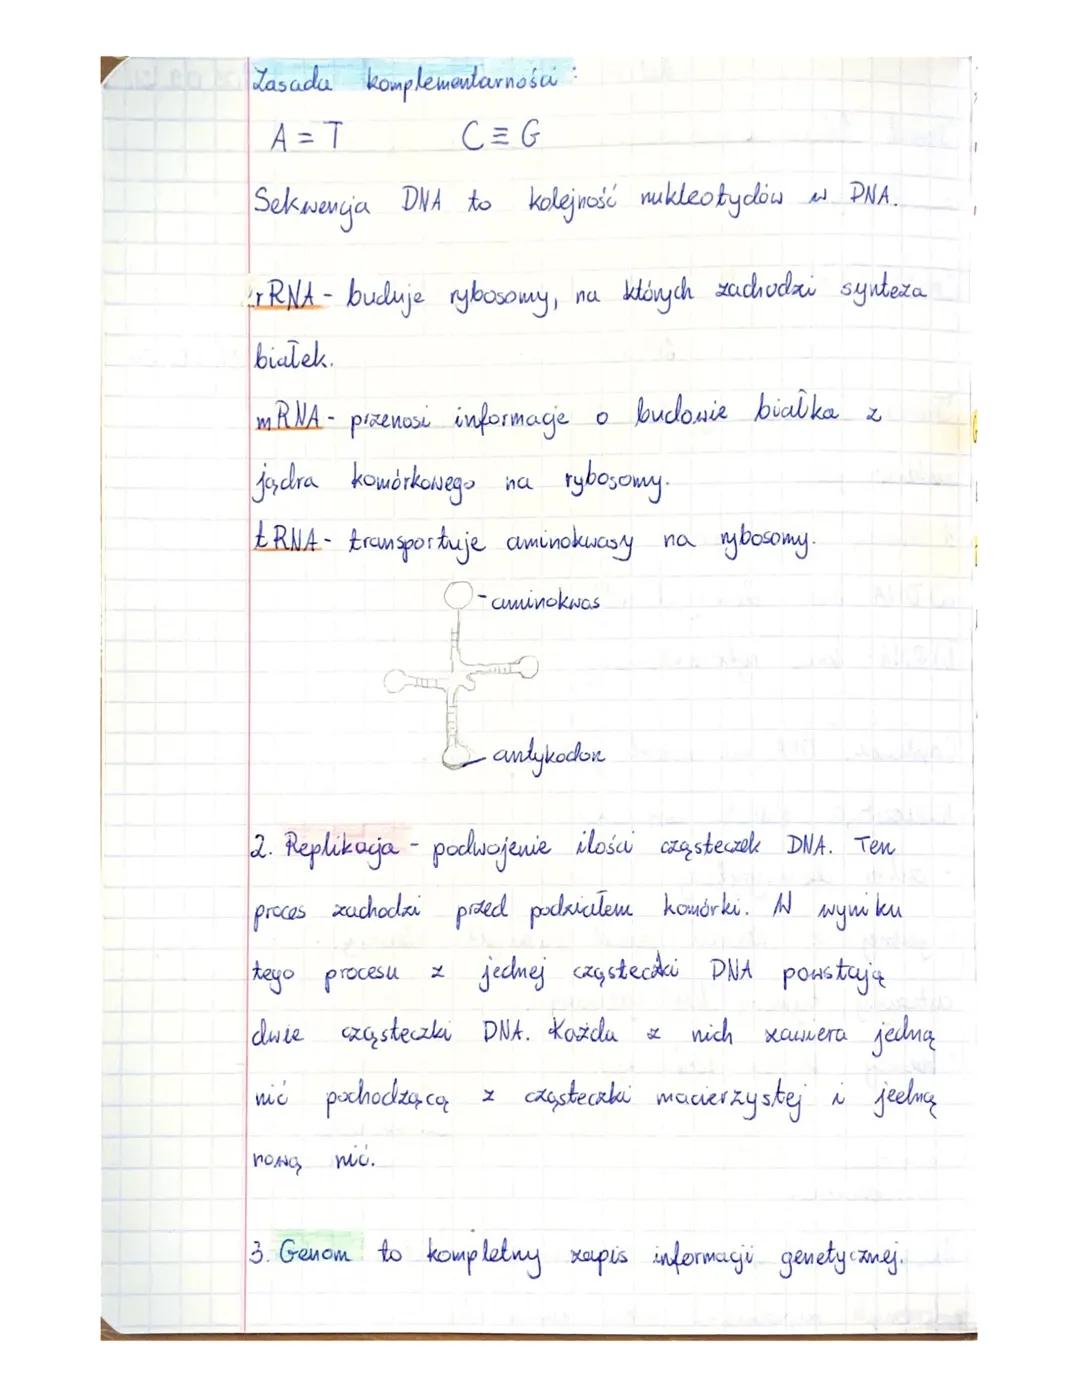 Zasada komplementarności:
A = T C ≡ G
Sekwencja DNA to kolejność nukleotydów w DNA.
rRNA - buduje rybosomy, na których zachodzi synteza
białek.
mRNA - przenosi informacje o budowie białka z
jądra komórkowego na rybosomy.
tRNA - transportuje aminokwasy na rybosomy.
- aminokwas
- antykodon
2. Replikacja - podwojenie ilości cząsteczek DNA. Ten
proces zachodzi przed podziałem komórki. W wyniku
tego procesu z jednej cząsteczki DNA powstają
dwie cząsteczki DNA. Każda z nich zawiera jedną
nić pochodzącą z cząsteczki macierzystej i jedną
nową nić.
3. Genom to kompletny zapis informacji genetycznej.